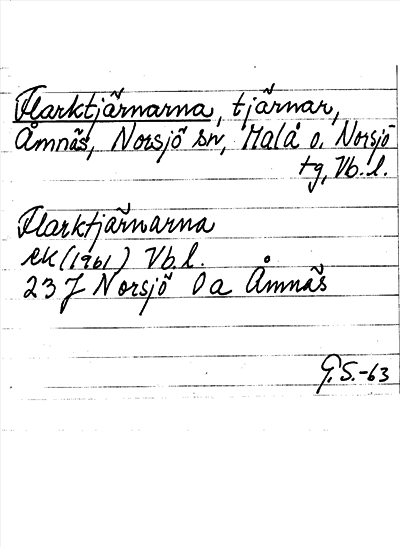 Flarktjärnarna, tjärnar,
Åmnäs, Norsjö sn, Malå o. Norsjö
tg, Vb. l.
Flarktjärnarna
ek (1961) Vb. l.
23 J Norsjö 0 a Åmnäs
G.S.-63